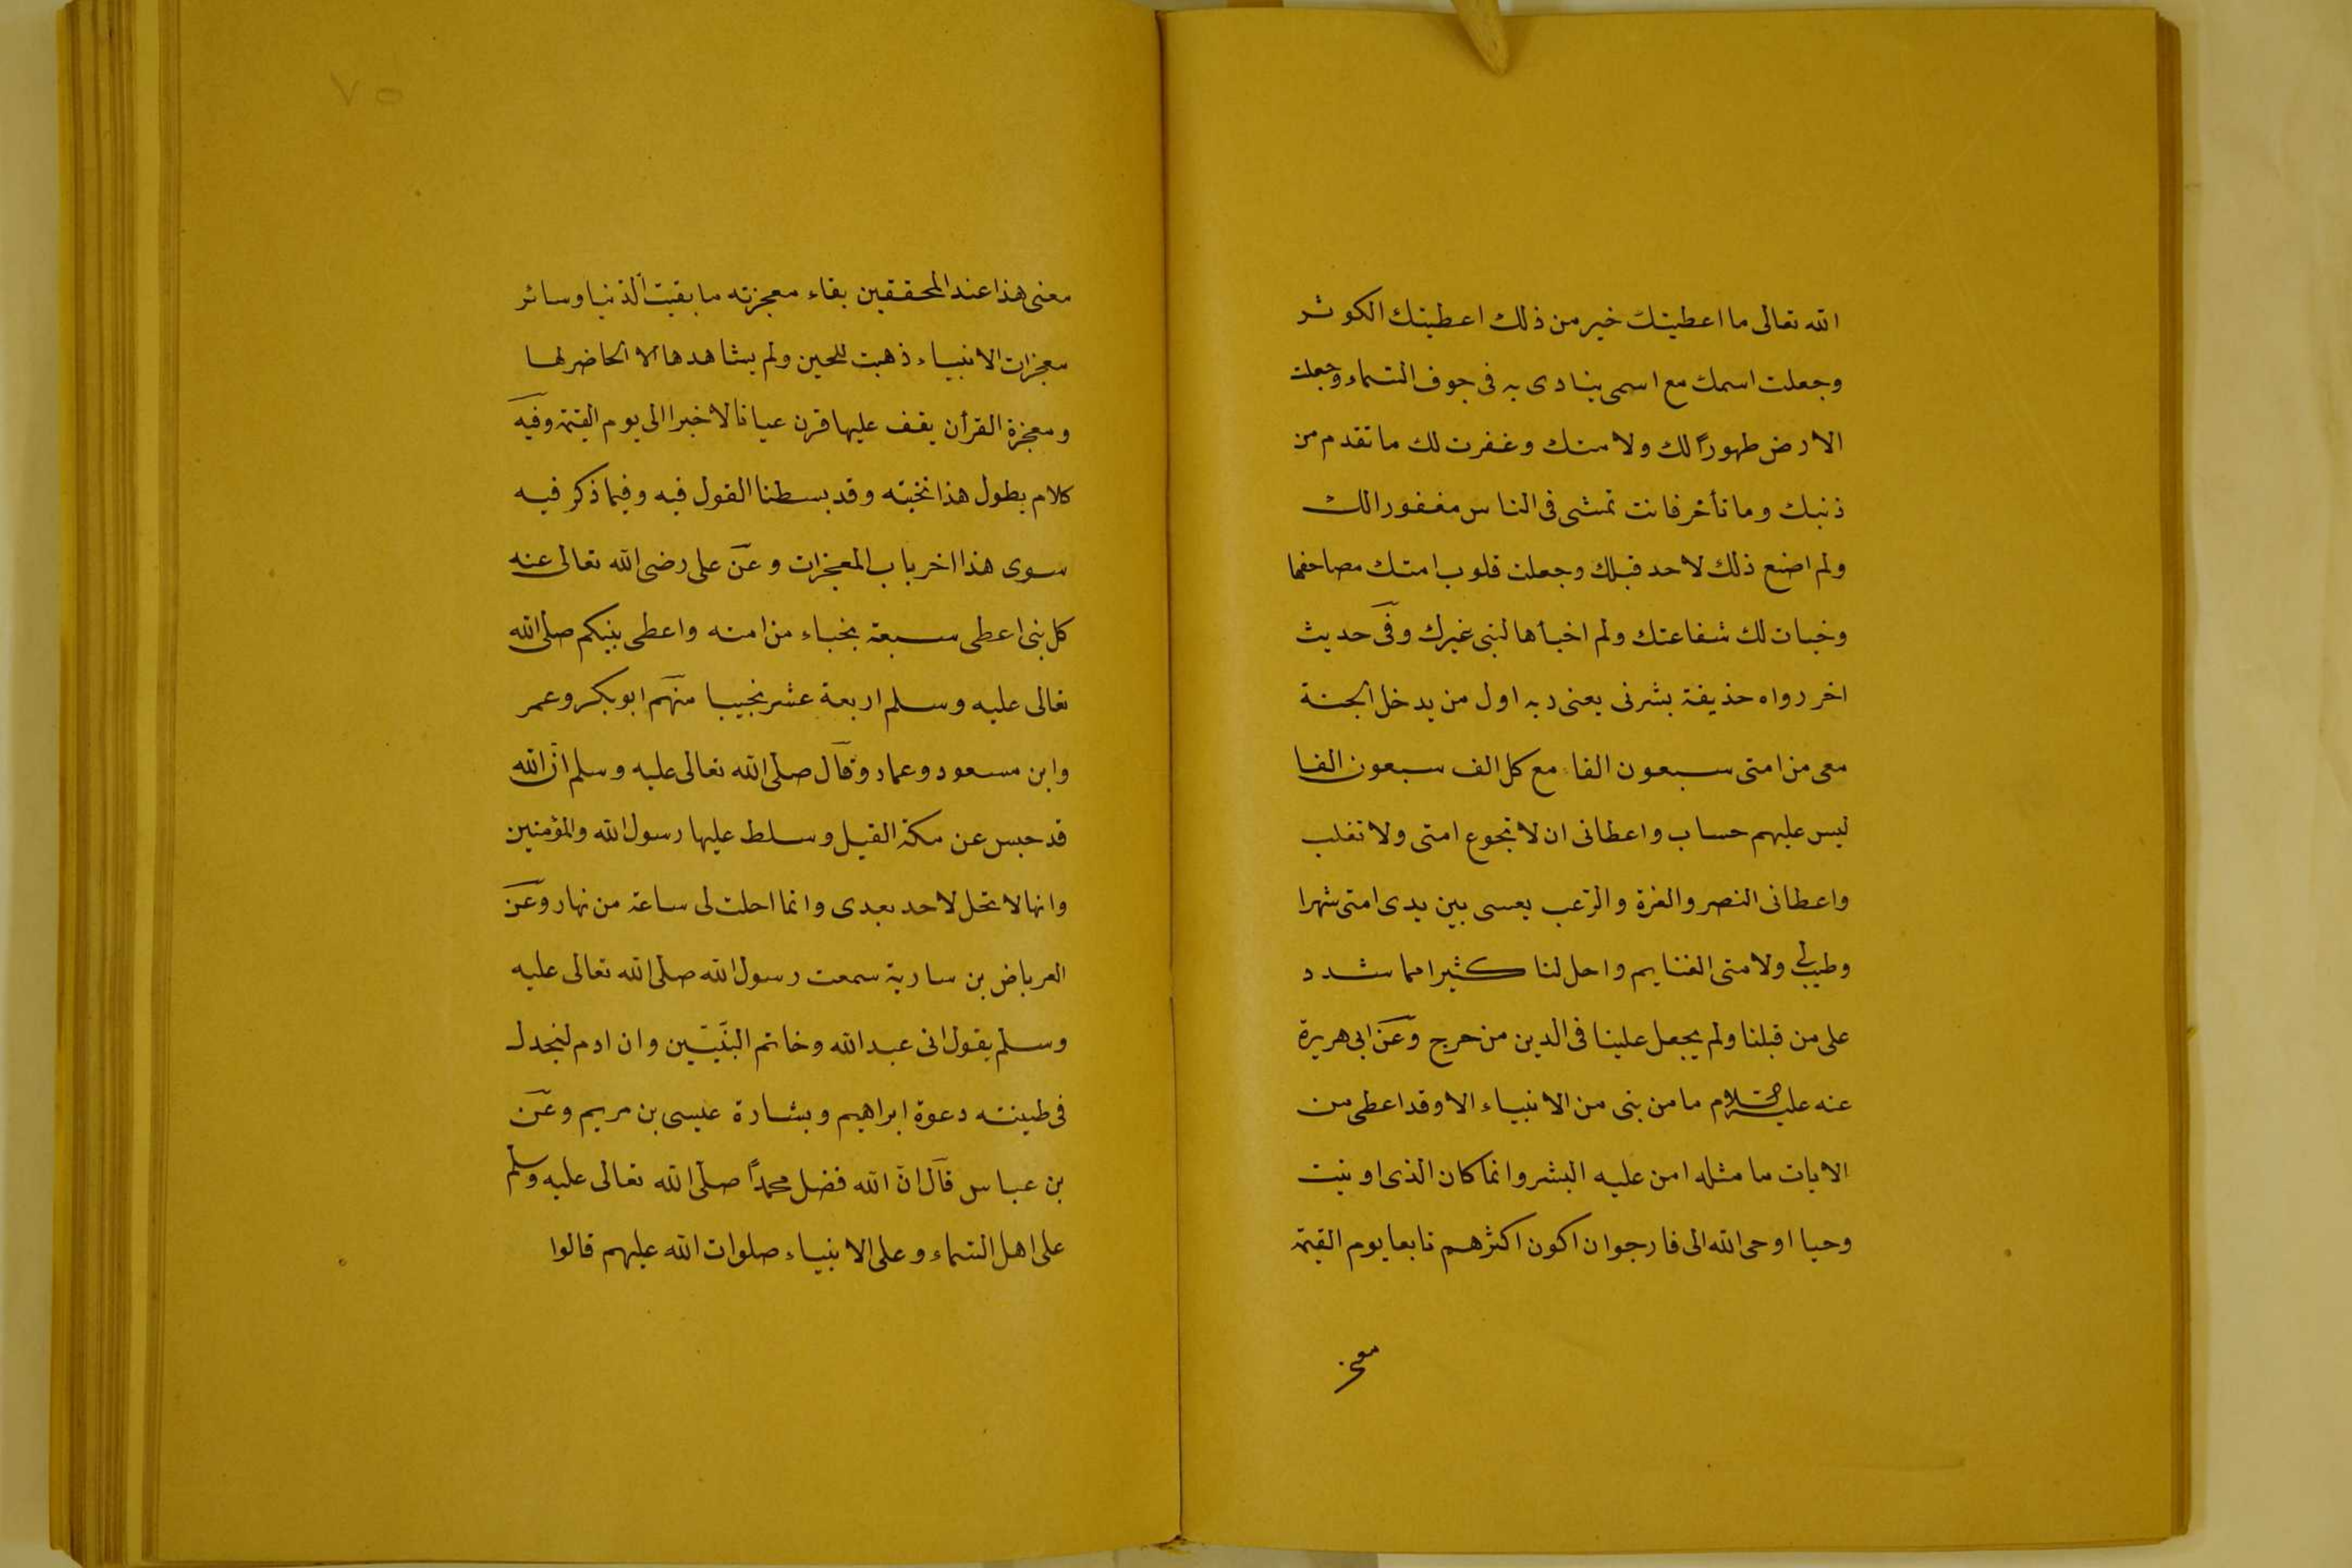 الله تعالى ما اعطيتك خير من ذلك اعطيتك الكوثر
وجعلت اسمك مع اسمى ينادى به فى جوف السماء وجعلت
الارض طهوراً لك ولامتك وغفرت لك ما تقدم من
ذنبك وما تأخر فانت تمشى فى الناس مغفورا لك
ولم اصنع ذلك لاحد قبلك وجعلت قلوب امتك مصاحفها
وخبات لك شفاعتك ولم اخبأها لنبى غيرك وفى حديث
اخر رواه حذيفة بشرنى يعنى ربه اول من يدخل الجنة
معى من امتى سبعون الفا مع كل الف سبعون الفا
ليس عليهم حساب واعطانى ان لا تجوع امتى ولا تغلب
واعطانى النصر والعزة والرعب يعسى بين يدى امتى شهرا
وطيب لى ولامتى الغنايم واحل لنا كثيرا مما شدد
على من قبلنا ولم يجعل علينا فى الدين من حرج وعن ابى هريرة
عنه عليه السلام ما من نبى من الانبياء الا وقد اعطى من
الايات ما مثله امن عليه البشر وانما كان الذى اوتيت
وحيا اوحى الله الى فارجوا ان اكون اكثرهم تابعا يوم القيمة
معنى
٧٥
معنى هذا عند المحققين بقاء معجزته ما بقيت الدنيا وسائر
معجزات الانبياء ذهبت للحين ولم يشاهدها الا الحاضر لها
ومعجزة القرأن يقف عليها قرن عيانا لا خبرا الى يوم القيمة وفيه
كلام يطول هذا نخبته وقد بسطنا القول فيه وفيما ذكر فيه
سوى هذا اخر باب المعجزات وعن على رضى الله تعالى عنه
كل نبى اعطى سبعة نجباء من امته واعطى نبيكم صلى الله
تعالى عليه وسلم اربعة عشر نجيبا منهم ابو بكر وعمر
وابن مسعود وعمار وقال صلى الله تعالى عليه وسلم ان الله
قد حبس عن مكة الفيل وسلط عليها رسول الله والمؤمنين
وانها لا تحل لاحد بعدى وانما احلت لى ساعة من نهار وعن
العرباض بن سارية سمعت رسول الله صلى الله تعالى عليه
وسلم يقول انى عبد الله وخاتم النبيّين وان ادم لنجدل
فى طينته دعوة ابراهيم وبشارة عيسى بن مريم وعن
بن عباس قال ان الله فضل محمداً صلى الله تعالى عليه وسلم
على اهل السماء وعلى الانبياء صلوات الله عليهم قالوا